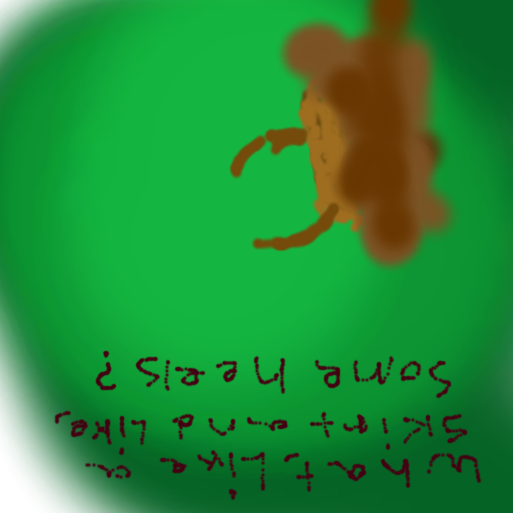 What like a
skirt and like,
some heels ?